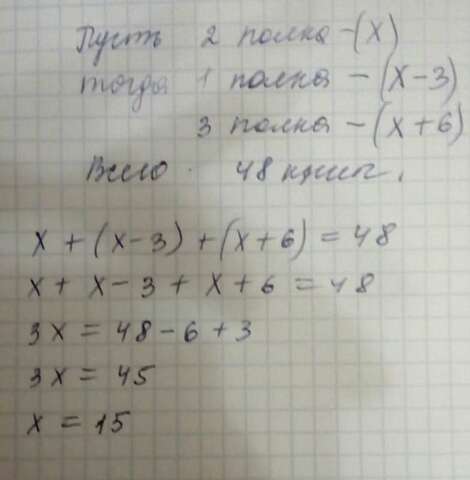 Пусть 2 полка - (x)
тогда 1 полка - (x-3)
3 полка - (x+6)
Всего. 48 книг.
x + (x-3) + (x+6) = 48
x + x - 3 + x + 6 = 48
3x = 48 - 6 + 3
3x = 45
x = 15